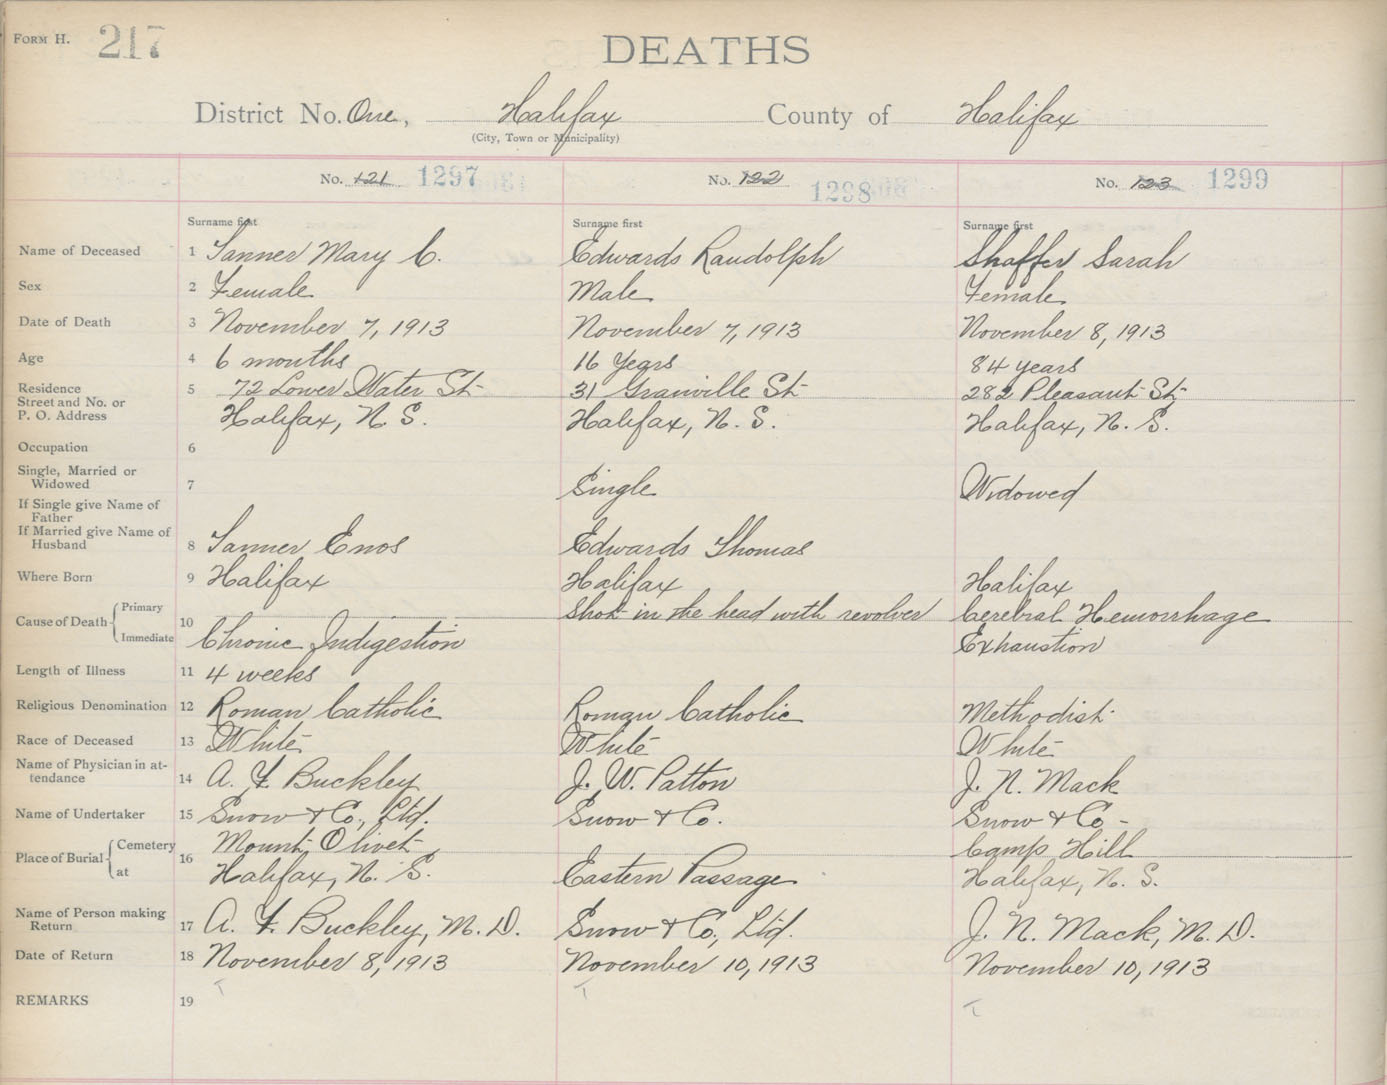 FORM H. 217
DEATHS
District No. One, Halifax County of Halifax
(City, Town or Municipality)
No. 121 1297 No. 122 1298 No. 123 1299
Surname first Surname first Surname first
Name of Deceased 1 Tanner Mary C. Edwards Randolph Shaffer Sarah
Sex 2 Female Male Female
Date of Death 3 November 7, 1913 November 7, 1913 November 8, 1913
Age 4 6 months 16 Years 84 years
Residence 5 72 Lower Water St 31 Granville St 282 Pleasant St
Street and No. or
P. O. Address Halifax, N. S. Halifax, N. S. Halifax, N. S.
Occupation 6
Single, Married or
Widowed 7 Single Widowed
If Single give Name of
Father
If Married give Name of
Husband 8 Tanner Enos Edwards Thomas
Where Born 9 Halifax Halifax Halifax
Cause of Death { Primary 10 Shot in the head with revolver Cerebral Hemorrhage
Immediate Chronic Indigestion Exhaustion
Length of Illness 11 4 weeks
Religious Denomination 12 Roman Catholic Roman Catholic Methodist
Race of Deceased 13 White White White
Name of Physician in at-
tendance 14 A. F. Buckley J. W. Patton J. N. Mack
Name of Undertaker 15 Snow & Co., Ltd. Snow & Co. Snow & Co -
Place of Burial { Cemetery 16 Mount Olivet Camp Hill
at Halifax, N. S. Eastern Passage Halifax, N. S.
Name of Person making
Return 17 A. F. Buckley, M. D. Snow & Co., Ltd. J. N. Mack, M. D.
Date of Return 18 November 8, 1913 November 10, 1913 November 10, 1913
REMARKS 19